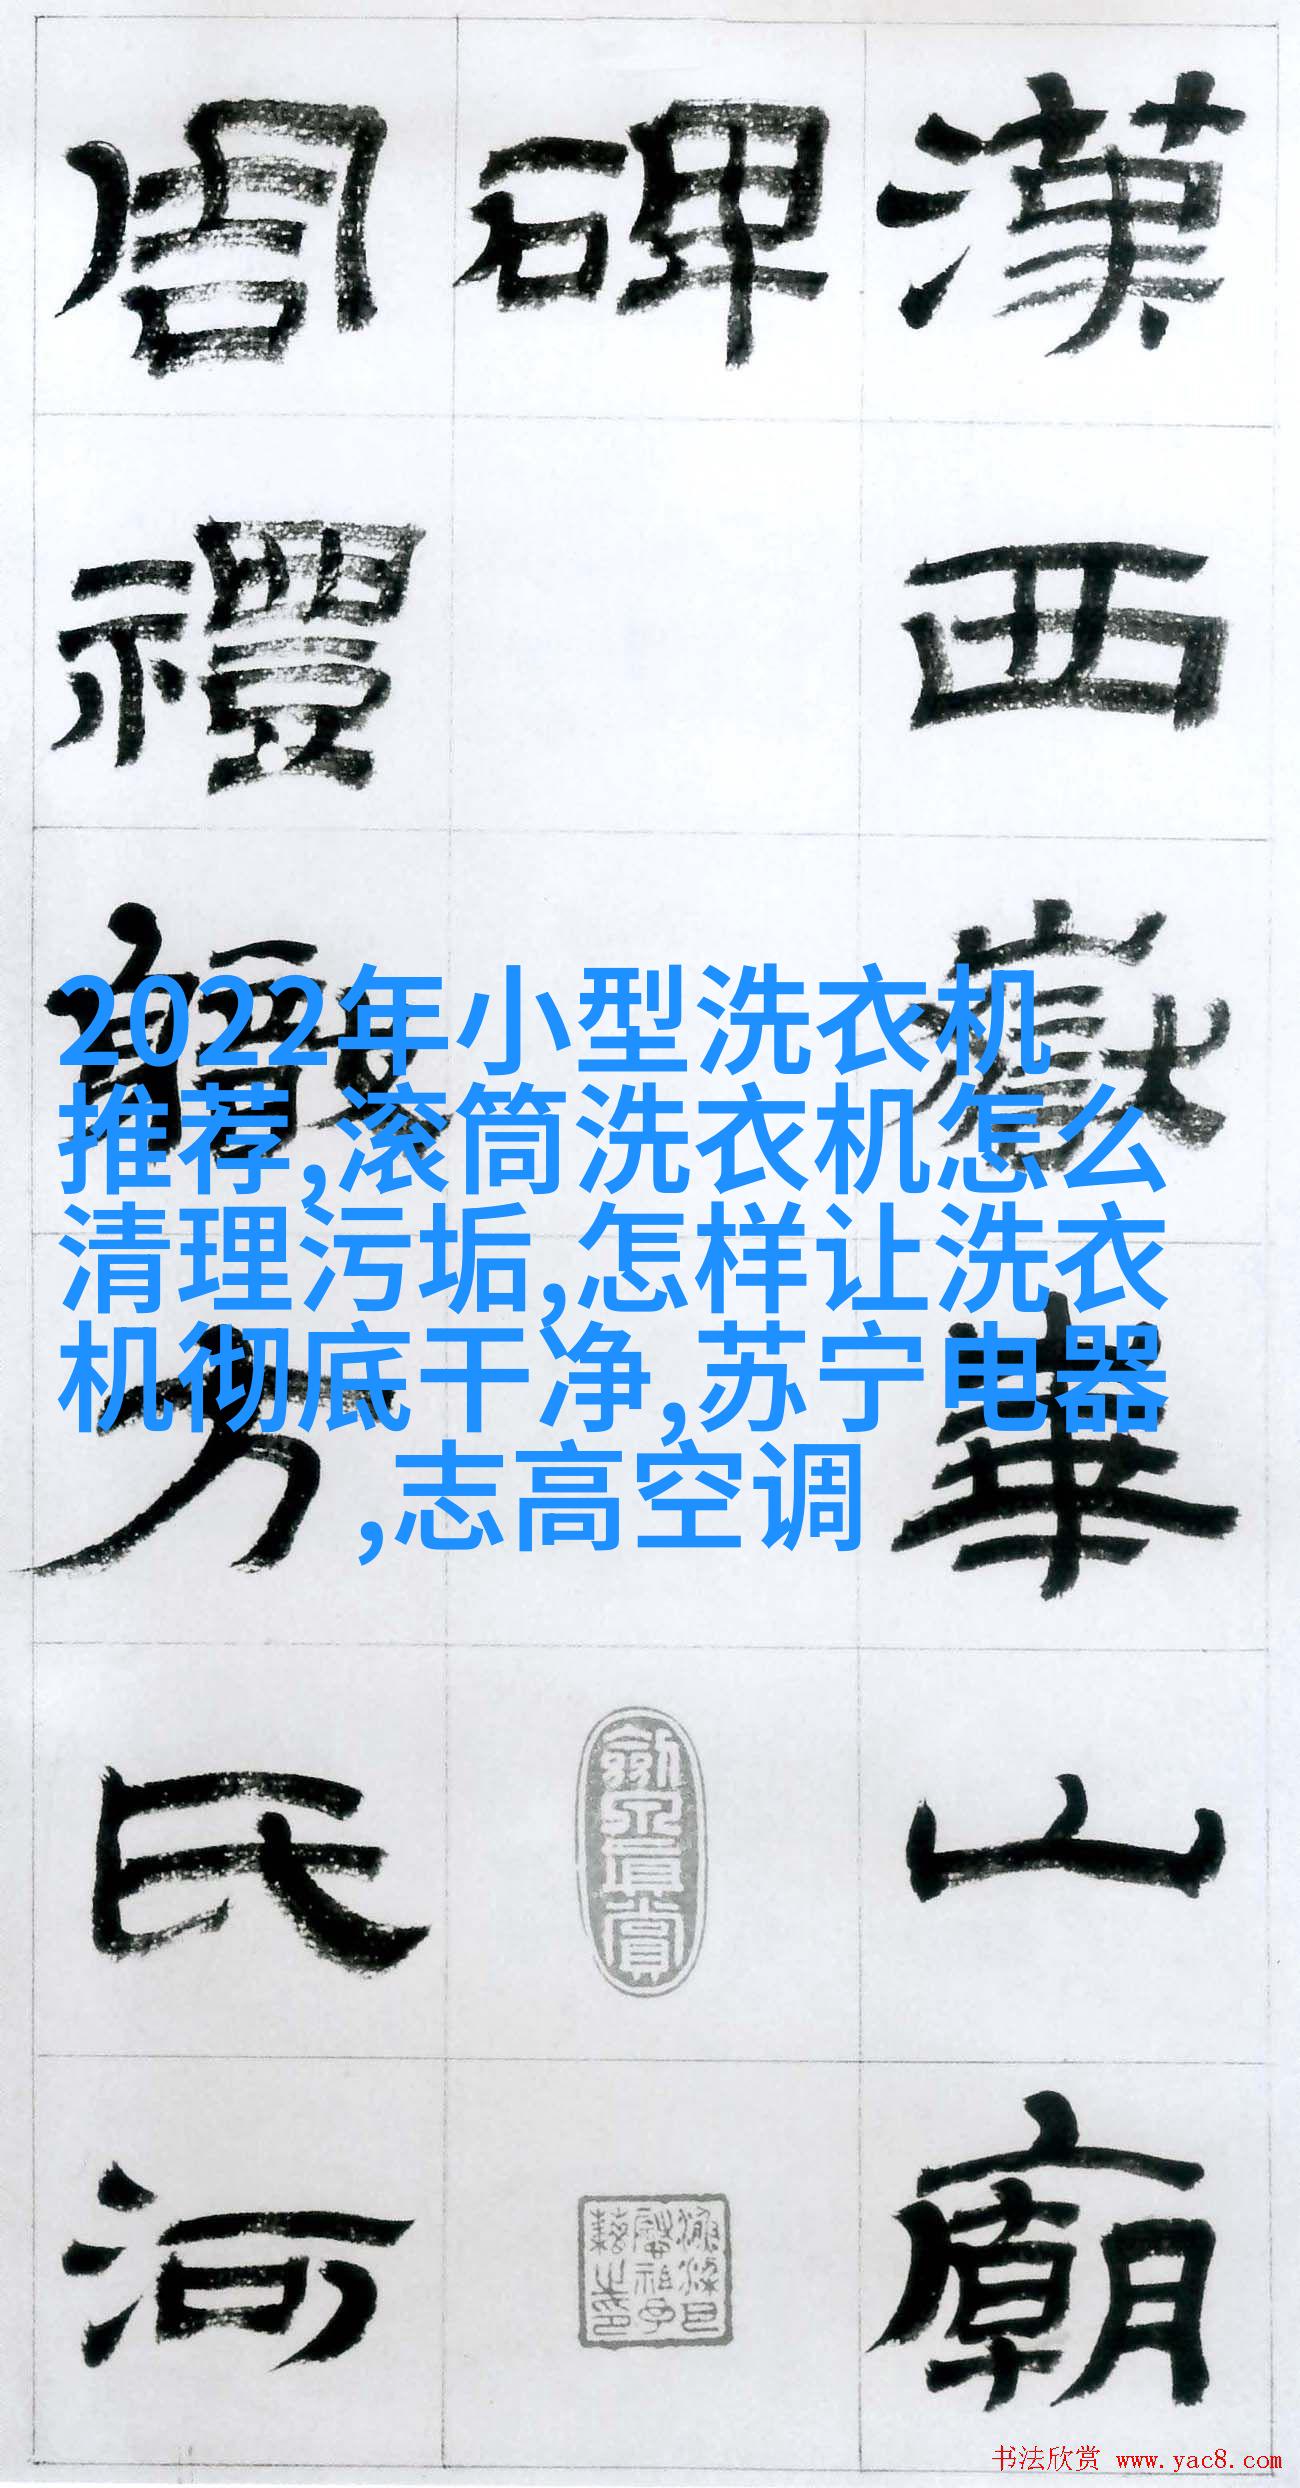 漢西嶽華山廟
碑
周禮職方氏河
2022年小型洗衣机
推荐,滚筒洗衣机怎么
清理污垢,怎样让洗衣
机彻底干净,苏宁电器
,志高空调
书法欣赏 www.yac8.com